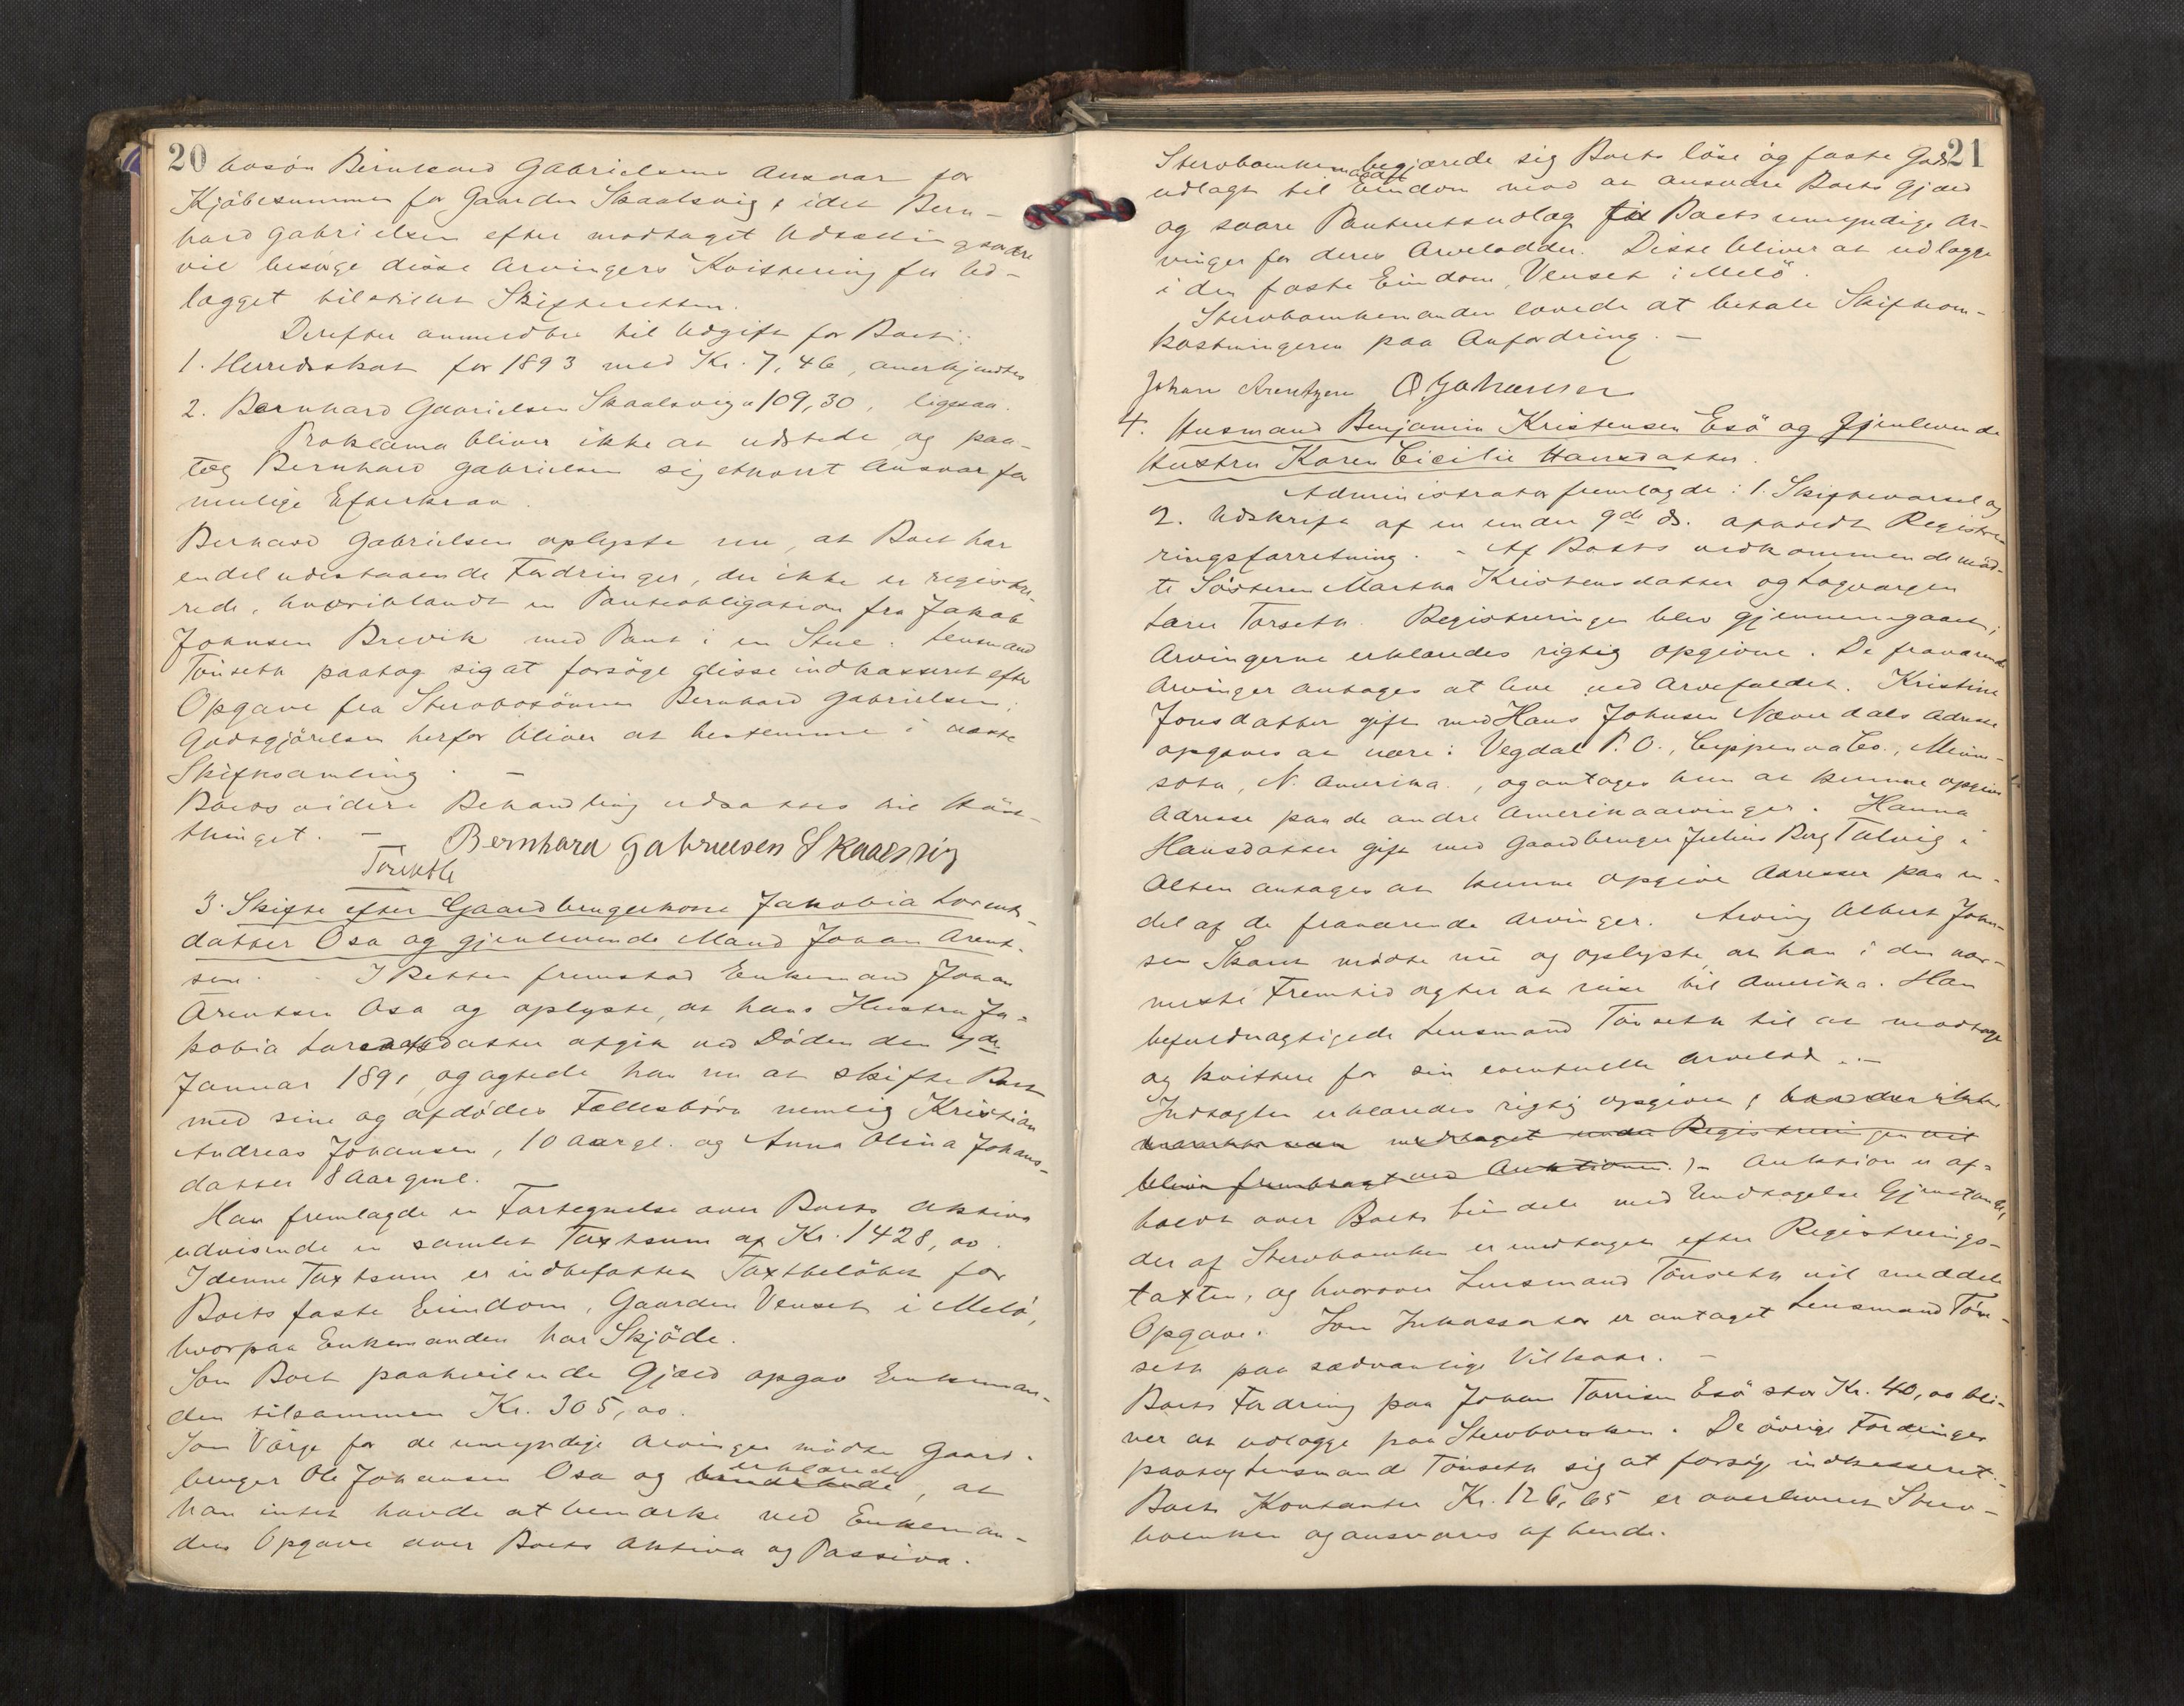 20
bosön Bernhard Gabrielsens Ansvar for
Kjöbesummen for Gaarden Skaalsvig, idet Bern-
hard Gabrielsen efter modtaget
vil besörge disse Arvingers Kvittering for Ud-
lægget tilstillet Skifteretten.
Derefter anmeldtes til Udgift for Boet:
1. Herredsskat for 1893 med Kr. 7,46, anerkjendtes
2. Bernhard Gabrielsen Skaalsvig " 109,30, ligesaa.
Proklama bliver ikke at udstede og paa-
tog Bernhard Gabrielsen sig ethvert Ansvar for
mulige Efterkrav.
Bernhard Gabrielsen oplyste nu, at Boet har
endel udestaaende Fordringer, der ikke er registre-
rede, hvoriblandt en Panteobligation fra Jakob
Johnsen Brevik med Pant i en Stue. Lensmand
Tönseth paatog sig at forsöge disse indkasseret efter
Opgave fra Stervbosönnen Bernhard Gabrielsen;
Godtgjörelsen herfor bliver at bestemme i næste
Skiftesamling. —
Boets videre Behandling udsattes til Höst-
thinget. —
Bernhard Gabrielsen Skaalsvig
Tönseth
3. Skifte efter Gaardbrugerkone Jakobia Lorents-
datter Osa og gjenlevende Mand Johan Arent-
sen. - I Retten fremstod Enkemand Johan
Arentsen Osa og oplyste, at hans Hustru Ja-
kobia Lorentsdatter afgik ved Döden den 7de
Januar 1891, og agtede han nu at skifte Boet
med sine og afdödes Fællesbörn nemlig Kristian
Andreas Johansen, 10 Aar gl. og Anna Olina Johans-
datter 8 Aar gml.
Han fremlagde en Fortegnelse over Boets Aktiva
udvisende en samlet Taxtsum af Kr. 1428,00.
I denne Taxtsum er indbefattet Taxtbelöbet for
Boets faste Eiendom, Gaarden Venset i Melö,
hvorpaa Enkemanden har Skjöde.
Som Boet paahvilende Gjæld opgav Enkeman-
den tilsammen Kr. 305,00.
Som Værge for de umyndige Arvinger mödte Gaard-
bruger Ole Johansen Osa og erklærede, at
han intet havde at bemærke ved Enkeman-
dens Opgave over Boets Aktiva og Passiva.
21
Stervboenkemanden begjærede sig Boets löse og faste Gods
udlagt til Eiendom mod at ansvare Boets Gjæld
og svare Panteretsudlæg til Boets umyndige Ar-
vinger for deres Arvelodder. Disse bliver at udlægge
i den faste Eiendom, Venset i Melö.
Stervboenkemanden lovede at betale Skifteom-
kostningerne paa Anfordring. —
Johan Arentzen O. Johansen
4. Husmand Benjamin Kristensen Esö og Gjenlevende
Hustru Karen Cicilie Hansdatter.
Administrator fremlagde: 1. Skiftevarsel og
2. Udskrift af en under 9de ds. afholdt Registre-
ringsforretning. - Af Boets vedkommende möd-
te Sösteren Martha Kristensdatter og Lagværgen
Lars Torseth. Registreringen blev gjennemgaaet;
Arvingerne erklæredes rigtig opgivne. De fraværende
Arvinger antages at leve ved Arvefaldet. Kristine
Jonsdatter gift med Hans Johnsen Næverdals Adresse
opgives at være: Vegdal P.O., Cippewa Co., Minne-
sota, N. Amerika., og antages hun at kunne opgive
Adresse paa de andre Amerikaarvinger. Hanna
Hansdatter gift med Gaardbruger Julius Berg Talvig i
Alten antages at kunne opgive Adresser paa en-
del af de fraværende Arvinger. Arving Albert John-
sen Skant mödte nu og oplyste, at han i den nær-
meste Fremtid agter at reise til Amerika. Han
befuldmægtigede Lensmand Tönseth til at modtage
og kvittere for sin eventuelle Arvelod. —
Indtægter erklæredes rigtig opgivne, hvad der ikke
medtaget under Registreringen vil
blive frembragt ved Auktionen.) — Auktion er af-
holdt over Boets Eiendele med Undtagelse Gjenstande,
der af Stervboenken er modtaget efter Registrerings-
taxten, og hvorover Lensmand Tönseth vil meddele
Opgave. Som Inkassator er antaget Lensmand Tön-
seth paa sædvanlige Vilkaar. —
Boets Fordring paa Johan Torrisen Esö stor Kr. 40,00 bli-
ver at udlægge paa Stervboenken. De övrige Fordringer
paatog Lensmand Tönseth sig at forsöge indkasseret.
Boets Kontanter Kr. 126,65 er overleveret Sterv-
boenken og ansvares af hende.